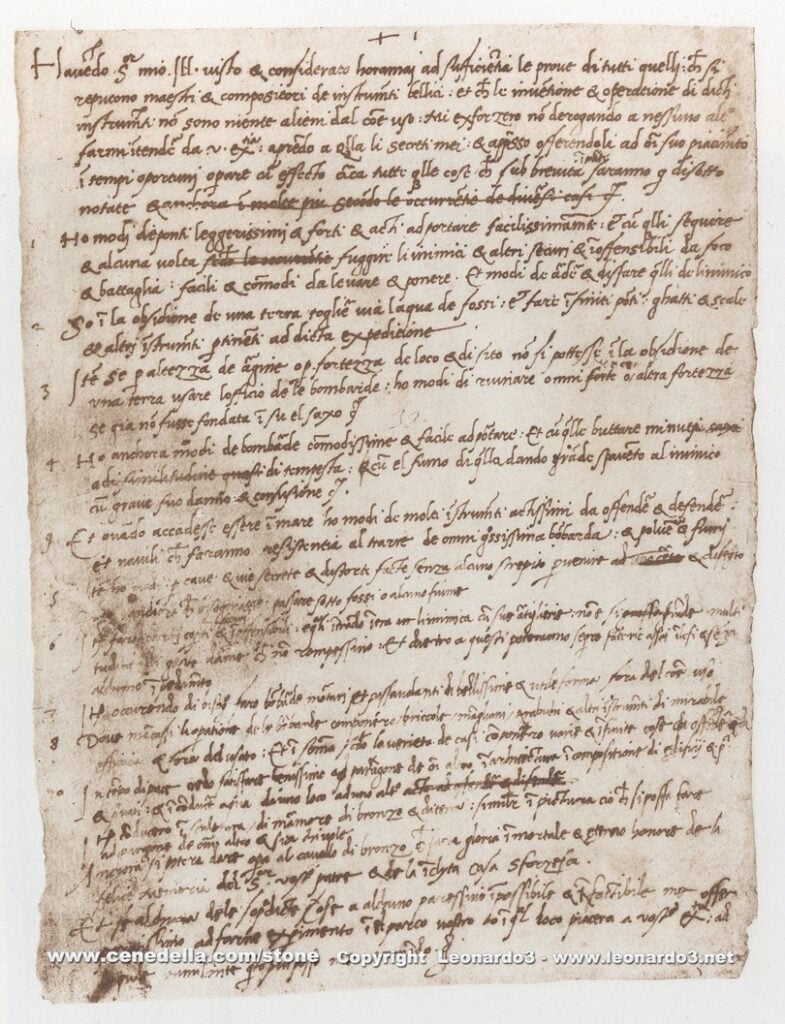 + 1
Havẽdo Sor mio Ill. visto & considerato horamai ad sufficiẽtia le prove di tutti quelli ch̃ si
reputono maestri & compositori de instrumẽti bellici: et ch̃ le invẽtione & operatione di dicti
instrumẽti nõ sono niente alieni dal cõe uso: Mi exforzerò nõ derogando a nessuno altro
farmi ĩtendẽ da v. exia: aprẽdo a qlla li secreti mei: & appsso offerendoli ad oĩ suo piacimẽto
ĩ tempi oportuni operare cũ effecto circa tutte qlle cose ch̃ sub brevità ĩ pte saranno q disotto
notate & anchora ĩ molte più secõdo le occurrẽtie de divẽsi casi
1 Ho modi de ponti leggerissimi & forti & acti ad portare facilissimamẽte: et cũ qlli seguire
& alcuna volta fuggire li inimici & altri securi & ĩoffensibili da foco
& battaglia: facili & cõmodi da levare & ponere. Et modi de ardẽ & disfare qlli de linimico
2 So ĩ la obsidione de una terra togliẽ via laqua de fossi: et fare ĩfiniti põti ghatti & scale
& altri ĩstrumẽti ptinenti ad dicta expeditione
3 Itẽ se p altezza de argine o p fortezza de loco & di sito nõ si potesse ĩ la obsidione de
una terra usare lofficio de le bombarde: ho modi di ruinare omni forte o altra fortezza
se già nõ fusse fondata ĩ su el saxo
4 Ho anchora modi de bombarde cõmodissime & facile ad portare: Et cũ qlle buttare minuti saxi
ad similitudine quasi di tempesta: & cũ el fumo di qlla dando grãde spavẽto al inimico
cũ grave suo danno & confusione
9 Et quãdo accadesse essere ĩ mare ho modi de molti ĩstrumẽti actissimi da offendẽ & defendẽ:
et navili ch̃ faranno resistentia al trarre de omni grossissima bõbarda: & polver & fumi
5 Itẽ ho modi p cave & vie secrete & distorte facte senza alcuno strepito pvenire ad & disegto
anchora ch̃ bisognasse passare sotto fossi o alcuno fiume
6 Itẽ farò carri coperti & ĩoffensibili: e quali ĩtrãdo ĩtra li inimica cũ sue artiglierie nõ è si grande multi
tudine di gente darme ch̃ nõ rompessino: Et dietro a questi poteranno seguire fanterie assai illesi & senza
alchuno ĩpedimẽto
7 Itẽ occurrendo di bisogno farò bõbarde mortari et passavolanti di bellissime & utile forme fora del cõe uso
8 Dove mãcassi la opatione de le bõbarde componerò briccole mãgani trabuchi & altri ĩstrumẽti di mirabile
efficacia & fora del usato: Et ĩ sõma sc̃do la varietà de casi cõponerò varie & ĩfinite cose da offẽdẽ & di
10 In tẽpo di pace credo satisfare benissimo ad paragone de oĩ altro ĩ architectura ĩ compositione di edificii & pu
& privati: & ĩ conducẽ aqua da uno loco ad uno altro acto ad offendẽ & difendẽ
Itẽ conducerò ĩ sculptura di marmore di bronzo & di terra: similiter ĩ pictura ciò ch̃ si possa fare
ad paragone de omni altro & sia chi vole
Ancora si poterà dare opera al cavallo di bronzo ch̃ sarà gloria ĩmortale & eterno honore de la
felice memoria del Sor vostro patre & de la ĩclyta casa Sforzesca.
Et se alchuna de le sopra dicte cose a alchuno paressino ĩpossibile & ĩfactibile me offer
paratissimo ad farne experimento ĩ el parco vostro o ĩ qual loco piacerà a vostr Ex: ad
www.cenedella.com/stone Copyright Leonardo3 - www.leonardo3.net